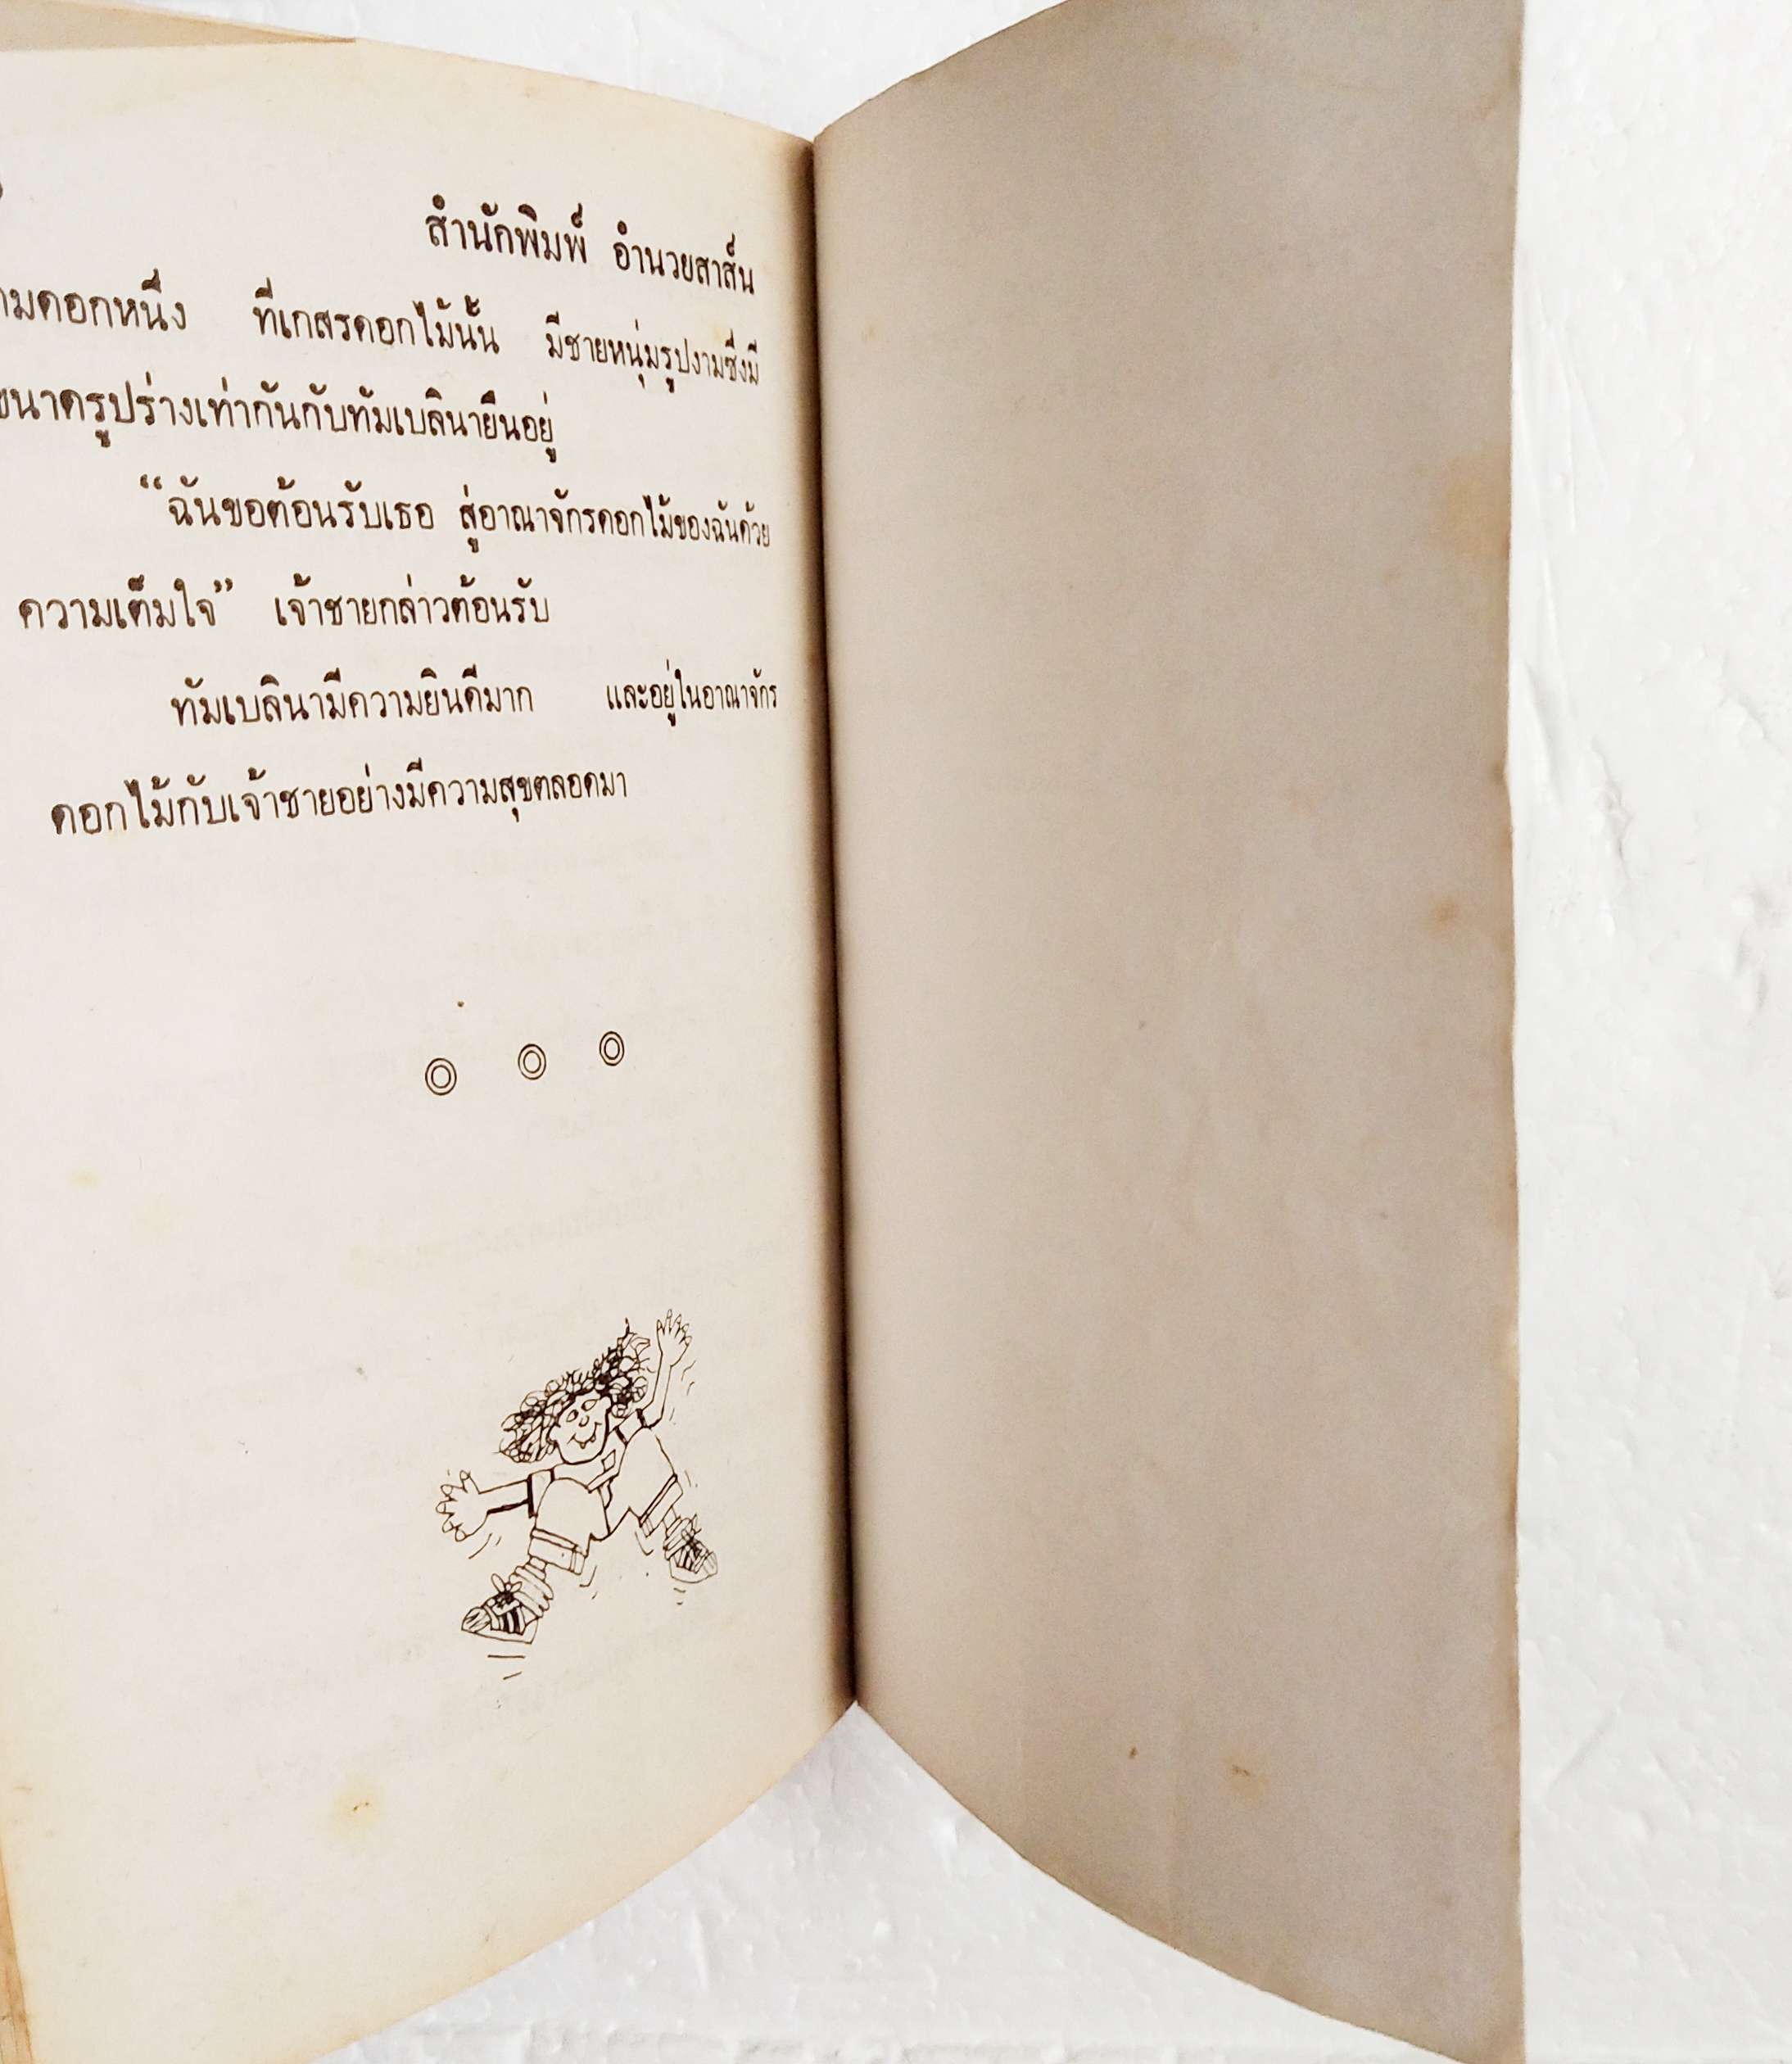 สำนักพิมพ์ อำนวยสาส์น
ดอกหนึ่ง ที่เกสรดอกไม้นั้น มีชายหนุ่มรูปงามซึ่งมี
ขนาดรูปร่างเท่ากันกับทัมเบลินายืนอยู่
“ฉันขอต้อนรับเธอ สู่อาณาจักรดอกไม้ของฉันด้วย
ความเต็มใจ” เจ้าชายกล่าวต้อนรับ
ทัมเบลินามีความยินดีมาก และอยู่ในอาณาจักร
ดอกไม้กับเจ้าชายอย่างมีความสุขตลอดมา